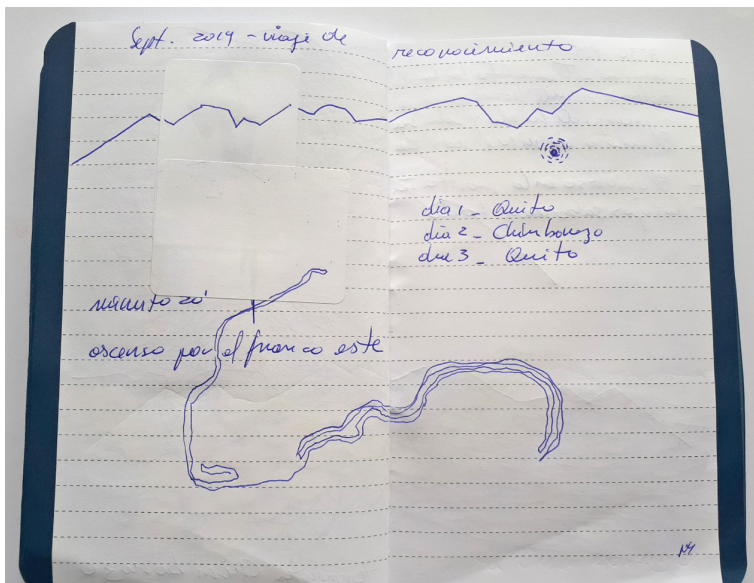 Sept. 2019 - viaje de reconocimiento
dia 1 - Quito
dia 2 - Chimborazo
dia 3 - Quito
minuto 20
ascenso por el flanco este